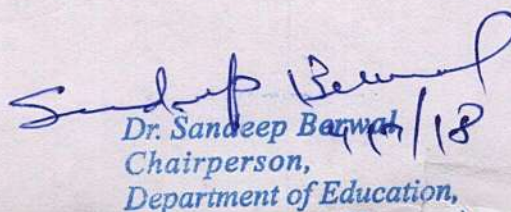 Sandeep Berwal
Dr. Sandeep Berwal
Chairperson,
Department of Education,